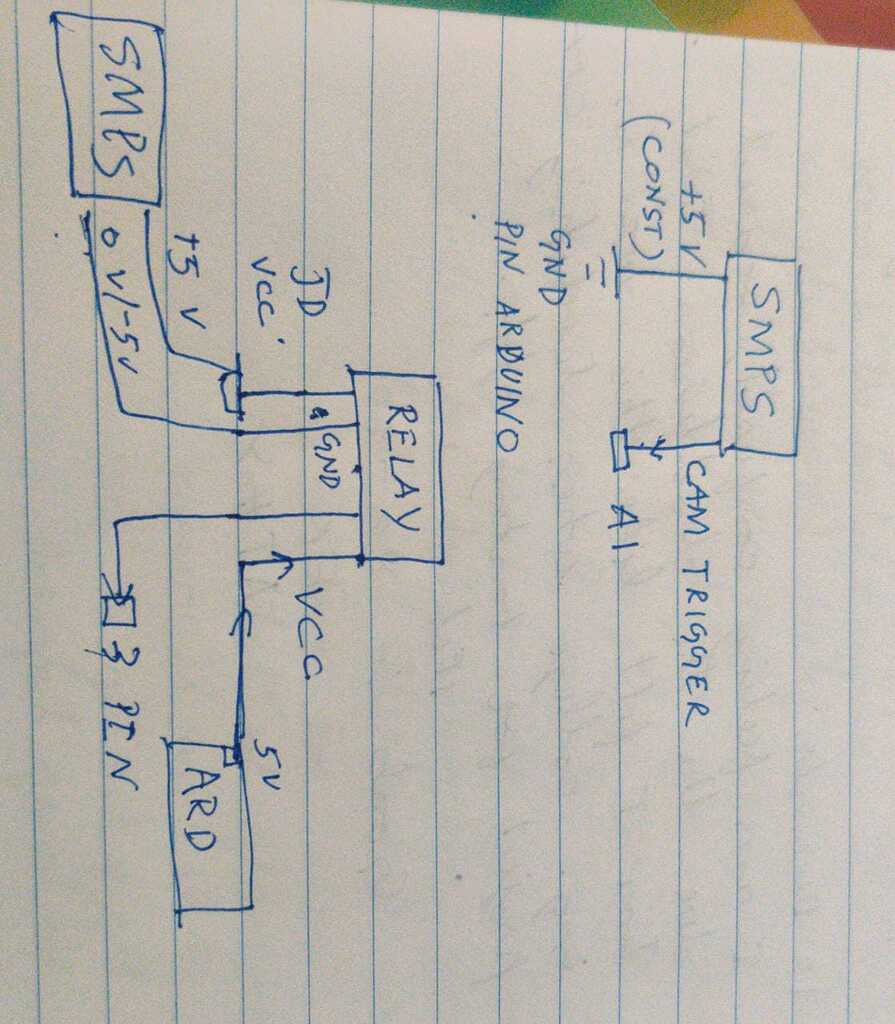 SMPS
+5V
(CONST)
CAM TRIGGER
A1
GND
PIN ARDUINO
RELAY
JD
VCC
GND
VCC
+5 V
SMPS
0V/-5V
5V
ARD
3 PIN